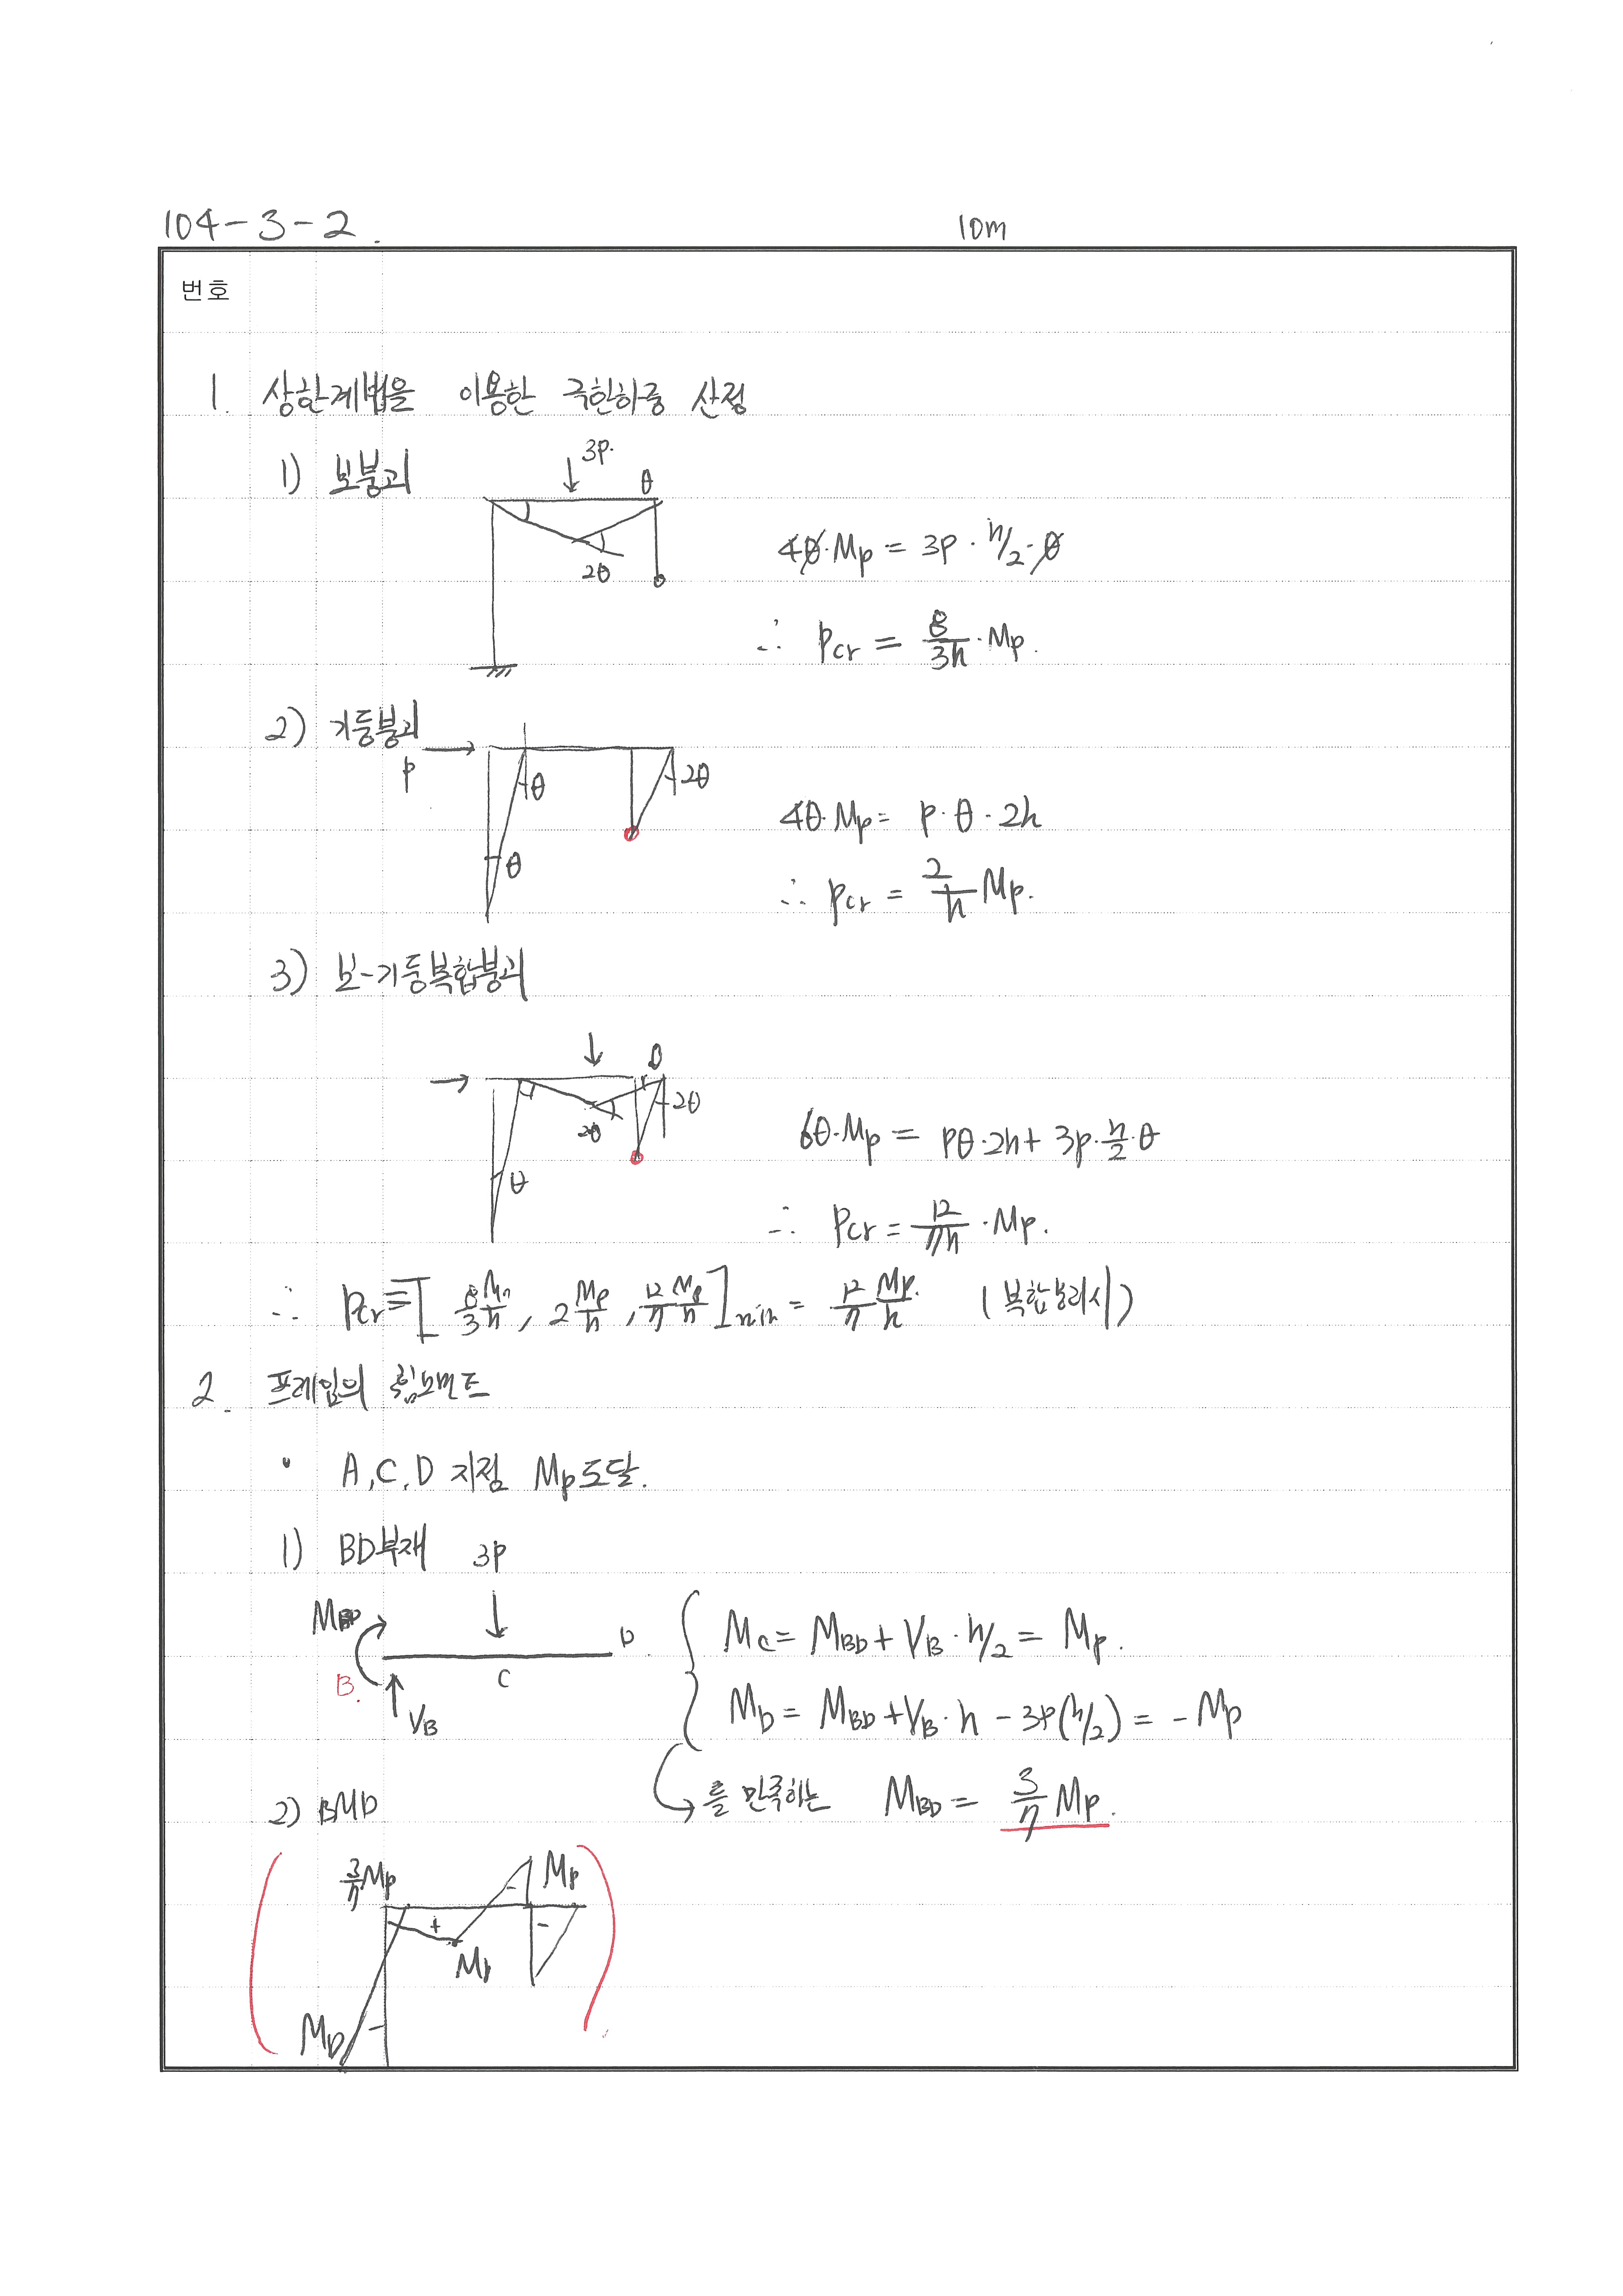 104-3-2.
10m
번호
1. 상한계법을 이용한 극한하중 산정
1) 보붕괴
3P.
θ
2θ
4θ·Mp = 3P·h/2·θ
∴ Pcr = 8/3h·Mp.
2) 기둥붕괴
P
θ
2θ
θ
4θ·Mp = P·θ·2h
∴ Pcr = 2/h Mp.
3) 보-기둥복합붕괴
2θ
2θ
θ
6θ·Mp = Pθ·2h + 3P·h/2·θ
∴ Pcr = 12/7h·Mp.
∴ Pcr = [8/3 Mp/h, 2 Mp/h, 12/7 Mp/h]min = 12/7 Mp/h. (복합붕괴시)
2. 프레임의 휨모멘트
• A, C, D 지점 Mp도달.
1) BD부재 3P
MBD
B.
VB
C
D
Mc = MBD + VB·h/2 = Mp.
MD = MBD + VB·h - 3P(h/2) = -Mp
를 만족하는 MBD = 3/7 Mp.
2) BMD
3/7 Mp
Mp
+
-
-
Mp
-